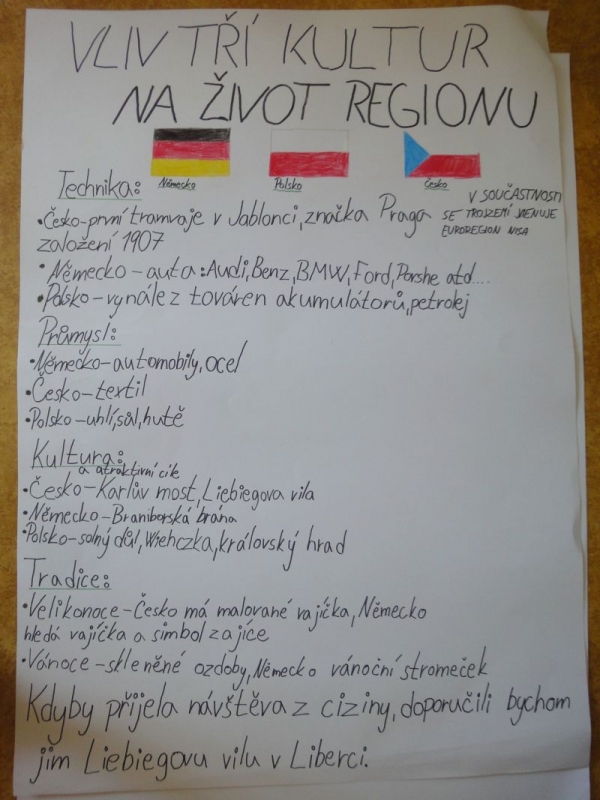 VLIV TŘÍ KULTUR
NA ŽIVOT REGIONU
Německo
Polsko
Česko
V SOUČASTNOSTI
SE TROJZEMÍ JMENUJE
EUROREGION NISA
Technika:
•Česko-první tramvaje v Jablonci, značka Praga
založení 1907
•Německo-auta: Audi, Benz, BMW, Ford, Porshe atd....
•Polsko-vynález továren akumulátorů, petrolej
Průmysl:
•Německo-automobily, ocel
•Česko-textil
•Polsko-uhlí, sůl, hutě
Kultura:
a atraktivní cíle
•Česko-Karlův most, Liebiegova vila
•Německo-Braniborská brána
•Polsko-solný důl, královský hrad
Tradice:
•Velikonoce-Česko má malované vajíčka, Německo
hledá vajíčka a simbol zajíce
•Vánoce-skleněné ozdoby, Německo vánoční stromeček
Kdyby přijela návštěva z ciziny, doporučili bychom
jim Liebiegovu vilu v Liberci.